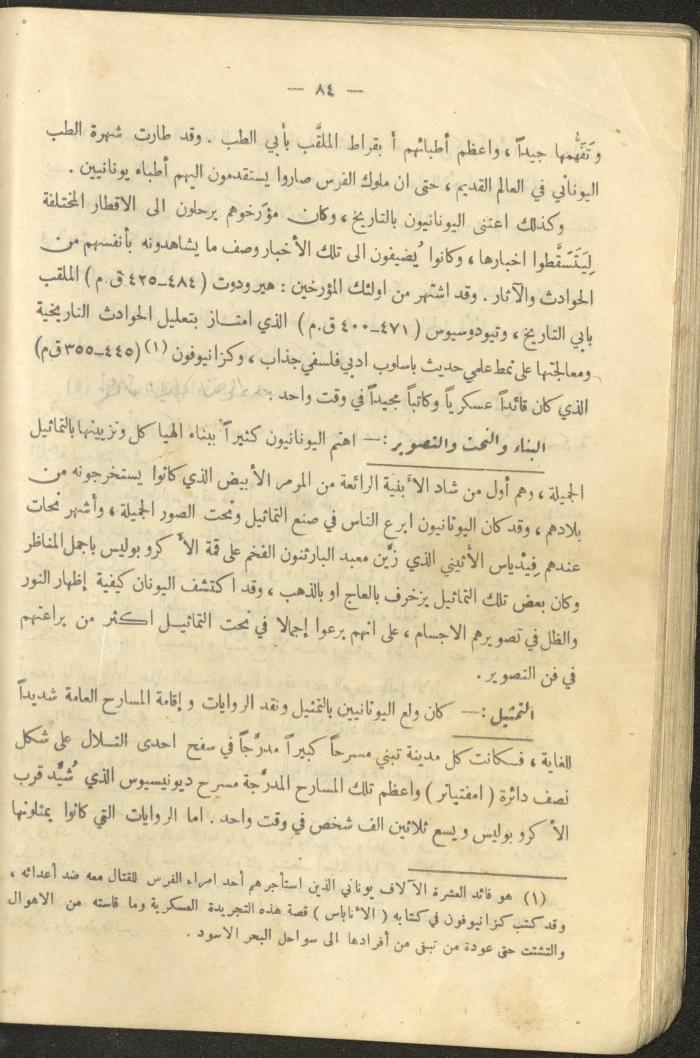 — ٨٤ —
وتَفَهّمها جيداً ، واعظم أطبائهم أ بقراط الملقَّب بأبي الطب . وقد طارت شهرة الطب
اليوناني في العالم القديم ، حتى ان ملوك الفرس صاروا يستقدمون اليهم أطباء يونانيين .
وكذلك اعتنى اليونانيون بالتاريخ ، وكان مؤرخوهم يرحلون الى الاقطار المختلفة
لِيَتَسَقَّطوا اخبارها ، وكانوا يُضيفون الى تلك الأخبار وصف ما يشاهدونه بأنفسهم من
الحوادث والآثار . وقد اشتهر من اولئك المؤرخين : هيرودوت ( ٤٨٤-٤٢٥ ق.م ) الملقب
بابي التاريخ ، وتيودوسيوس ( ٤٧١-٤٠٠ ق.م ) الذي امتــاز بتعليل الحوادث التاريخية
ومعالجتها على نمط علمي حديث باسلوب ادبي فلسفي جذاب ، وكزانيوفون (١) (٤٤٥-٣٥٥ ق م)
الذي كان قائداً عسكرياً وكاتباً مجيداً في وقت واحد .
البناء والنحت والتصوير :— اهتم اليونانيون كثيراً ببناء الهيا كل وتزيينها بالتماثيل
الجميلة ، وهم أول من شاد الأبنية الرائعة من المرمر الأبيض الذي كانوا يستخرجونه من
بلادهم ، وقد كان اليونانيون ابرع الناس في صنع التماثيل ونحت الصور الجميلة ، وأشهر نحات
عندهم فِيْدْياس الأثيني الذي زيَّن معبد البارثنون الفخم على قمة الأ كرو بوليس باجمل المناظر
وكان بعض تلك التماثيل يزخرف بالعاج او بالذهب ، وقد اكتشف اليونان كيفية إظهار النور
والظل في تصويرهم الاجسام ، على انهم برعوا إجمالا في نحت التماثيــل اكثر من براعتهم
في فن التصوير .
التمثيل :— كان ولع اليونانيين بالتمثيل ونقد الروايات و إقامة المسارح العامة شديداً
للغاية ، فــكانت كل مدينة تبني مسرحاً كبيراً مدرَّجاً في سفح احدى التــلال على شكل
نصف دائرة ( امفتياتر ) واعظم تلك المسارح المدرَّجة مسرح ديونيسيوس الذي شُيِّد قرب
الأ كرو بوليس و يسع ثلاثين الف شخص في وقت واحد . اما الروايات التي كانوا يمثلونها
(١) هو قائد العشرة الآلاف يوناني الذين استأجرهم أحد امراء الفرس للقتال معه ضد أعدائه ،
وقد كتب كزانيوفون في كتابه ( الأناباس ) قصة هذه التجريدة العسكرية وما قاسته من الاهوال
والتشتت حتى عودة من تبقى من أفرادها الى سواحل البحر الاسود .